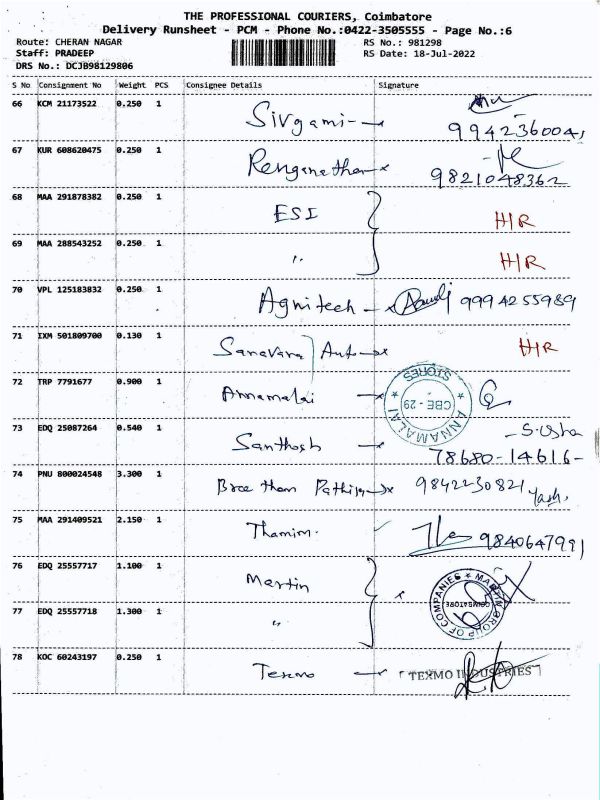 THE PROFESSIONAL COURIERS, Coimbatore
Delivery Runsheet - PCM - Phone No.:0422-3505555 - Page No.:6
Route: CHERAN NAGAR RS No.: 981298
Staff: PRADEEP RS Date: 18-Jul-2022
DRS No.: DCJB98129806
S No Consignment No Weight PCS Consignee Details Signature
66 KCM 21173522 0.250 1 Sivgami
994236004
67 KUR 608620475 0.250 1 Renganathan
9821048362
68 MAA 291878382 0.250 1 ESI H/R
69 MAA 288543252 0.250 1 " H/R
70 VPL 125183832 0.250 1 Agnitech 9994255989
71 IXM 501809700 0.130 1 Saravana Auto H/R
72 TRP 7791677 0.900 1 Annamalai ANNAMALAI STORES CBE - 29
73 EDQ 25087264 0.540 1 Santhosh S. Usha
78680-14616
74 PNU 800024548 3.300 1 9842230821 Yash.
75 MAA 291409521 2.150 1 Thamim. 9840647991
76 EDQ 25557717 1.100 1 Martin MARTIN GROUP OF COMPANIES COIMBATORE
77 EDQ 25557718 1.300 1 "
78 KOC 60243197 0.250 1 Texmo TEXMO INDUSTRIES